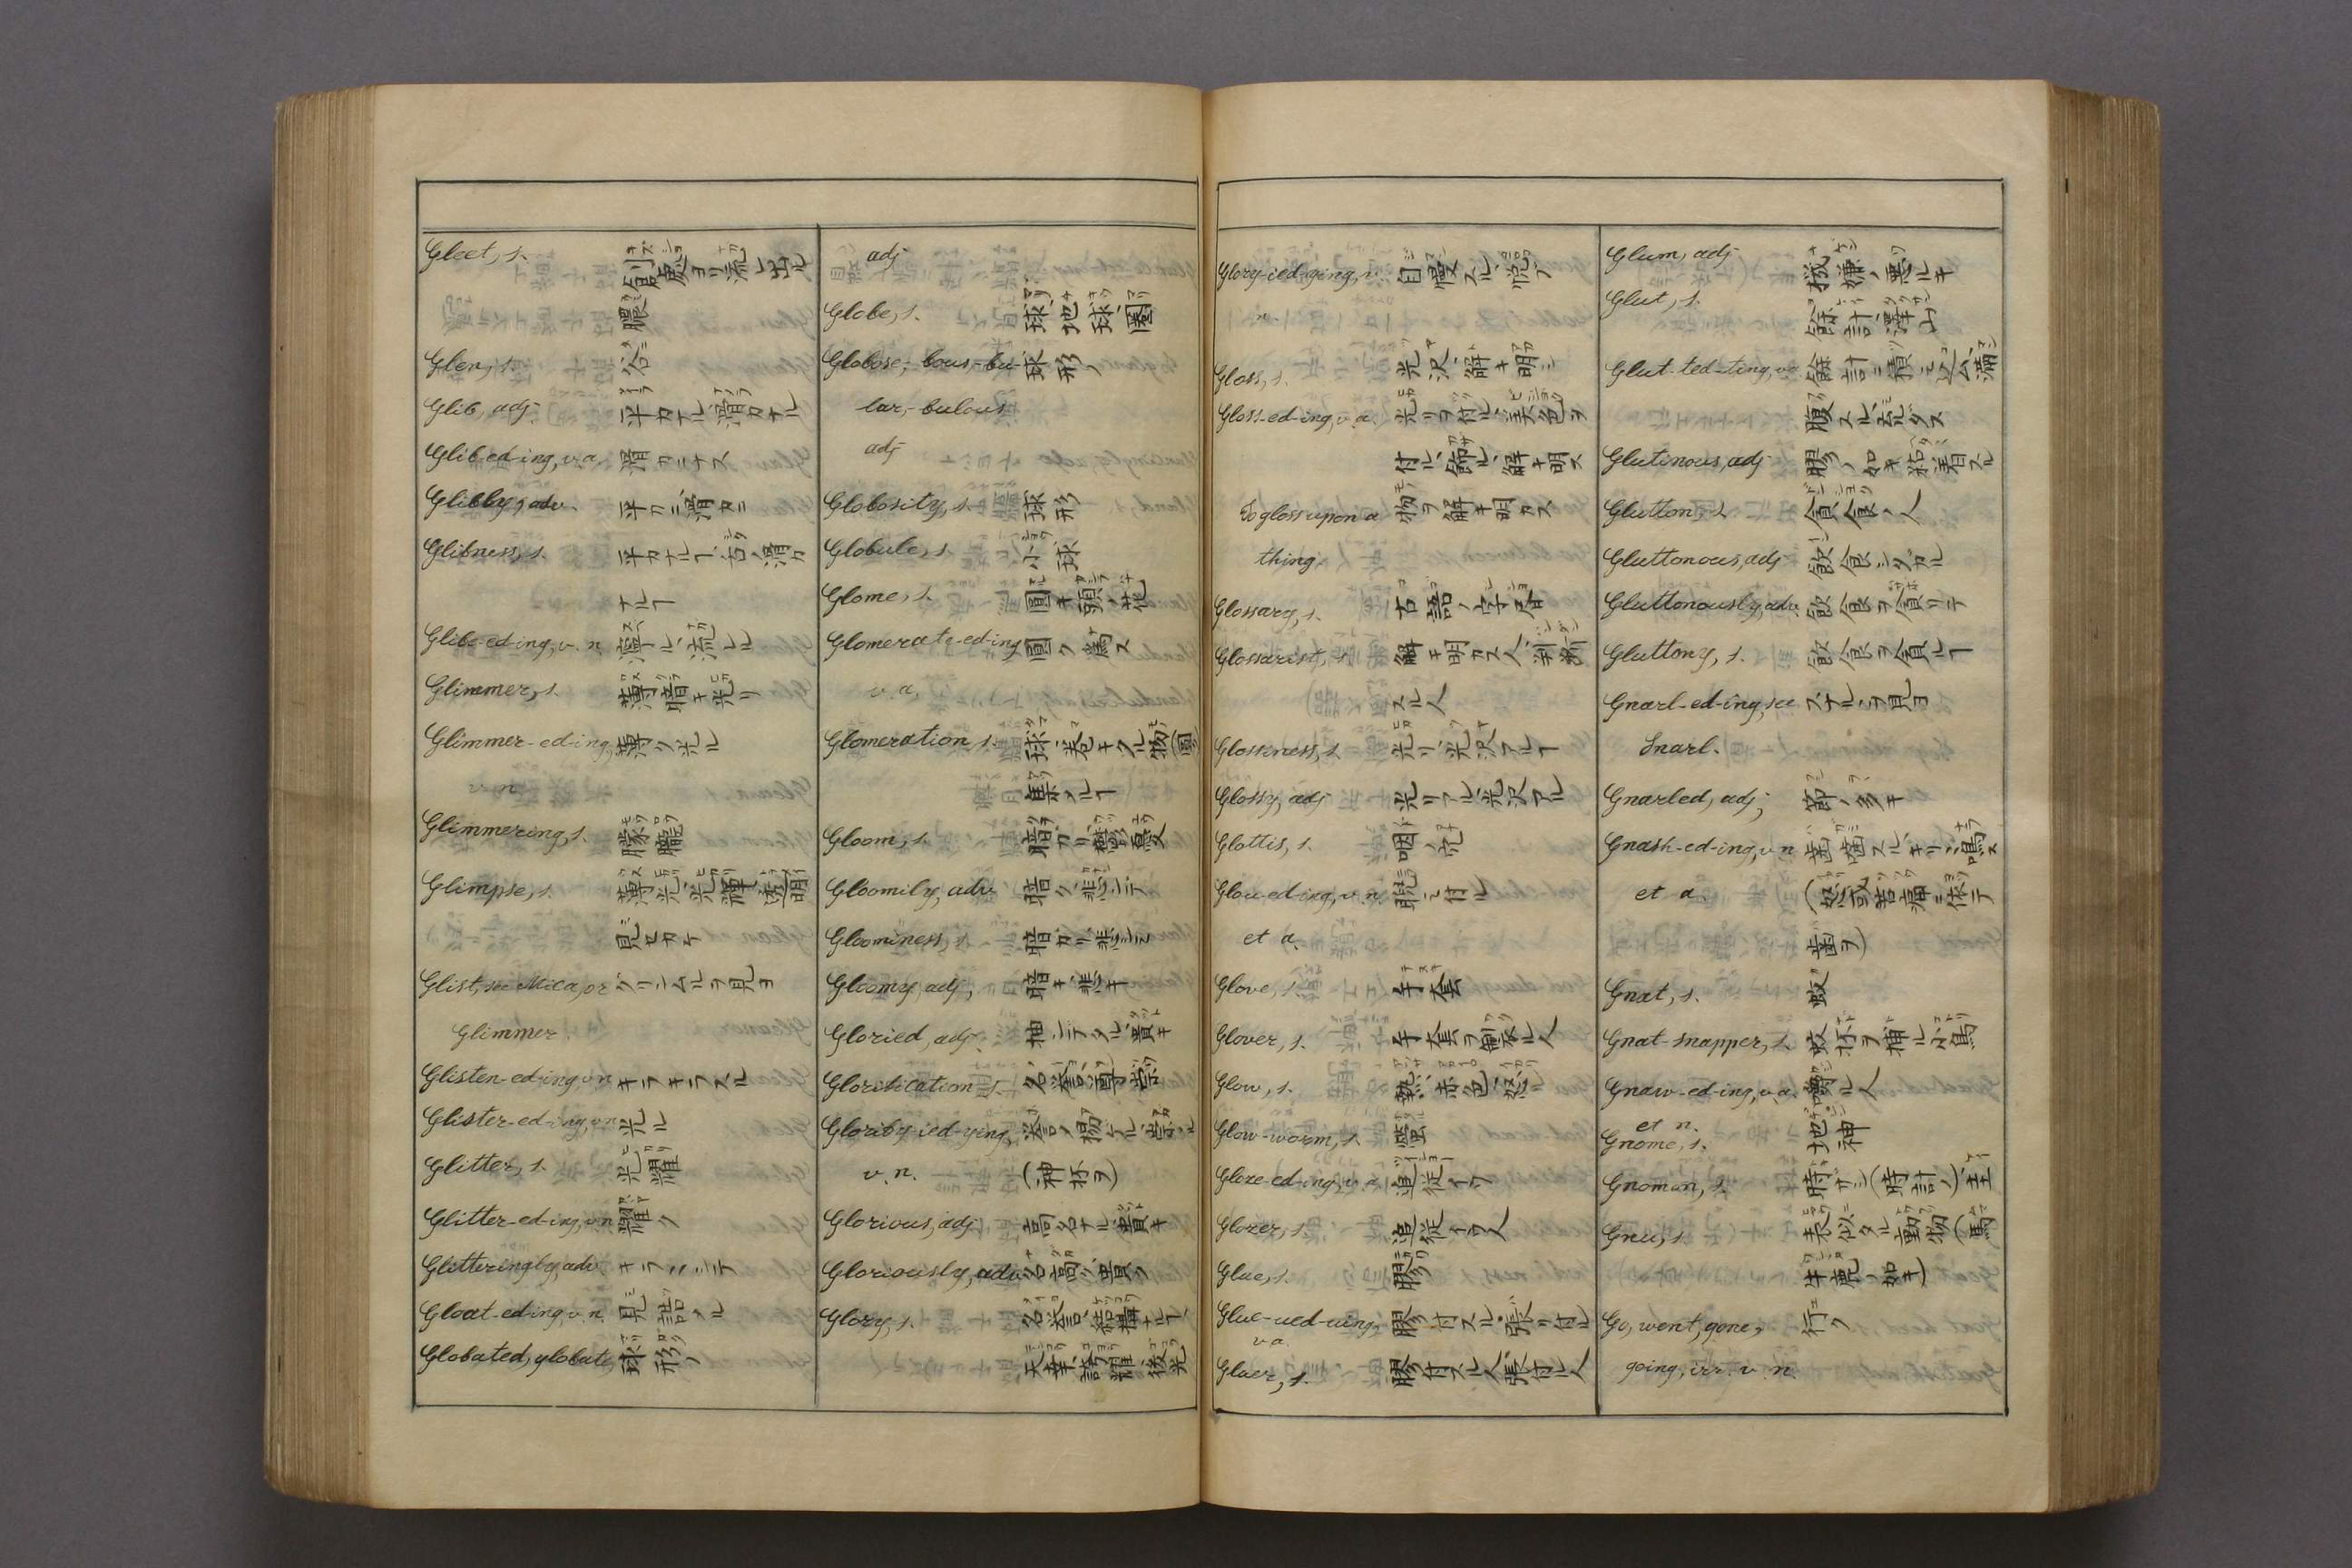 Gleet, s. 創処ヨリ流レ出ル
膿
Glen, s. 谷
Glib, adj 平カナル、滑カナル
Glib-ed-ing, v.a. 滑カニナス
Glibly, adv. 平カニ、滑カニ
Glibness, s. 平カナルヿ、舌ノ滑カ
ナルヿ
Glibe-ed-ing, v.n. 滑ル、流レル
Glimmer, s. 薄暗キ光リ
Glimmer-ed-ing, 薄ク光ル
v.n.
Glimmering, s. 朦朧
Glimpse, s. 薄光、光輝、透明
見セカケ
Glist, see Mica, or グリームルヲ見ヨ
Glimmer.
Glisten-ed-ing, v.n. キラキラスル
Glister-ed-ing, v.n. 光ル
Glitter, s. 光耀
Glitter-ed-ing, v.n. 耀ク
Glitteringly, adv.
Gloat-ed-ing, v.n. 見詰ル
Globated, globate, 球形ノ
adj
Globe, s. 球、地球、圏
Globose,-bous,-bu- 球形ノ
lar,-bulous
adj
Globosity, s. 球形
Globule, s. 小球
Glome, s. 圓キ頭ノ花
Glomerate-ed-ing 圓ク為ス
v.a.
Glomeration, s. 球、巻キタル物(圓
集タルヿ
Gloom, s. 暗ガリ、欝憂
Gloomily, adv. 暗ク、悲シテ
Gloominess, s. 暗ガリ、悲シミ
Gloomy, adj, 暗キ、悲キ
Gloried, adj. 抽ンデタル、貴キ
Glorification, s. 名誉、尊崇
Glorify-ied-ying, 誉ノ揚ル、崇ル
v.n. (神抔ヲ)
Glorious, adj 高名ナル、貴キ
Gloriously, adv 名高ク、貴ク
Glory, s. 名誉、結構ナルヿ、
天幸、誇耀、後光
Glory-ied-ying, v. 自慢スル、悦フ
n.
Gloss, s. 光沢、解キ明シ
Gloss-ed-ing, v.a. 光リヲ付ル、美色ヲ
付ル、飾ル、解キ明ス
To gloss upon a 物ヲ解キ明カス
thing.
Glossary, s. 古語ノ字書
Glossarist, s. 解キ明カス人、判断
スル人
Glossiness, s. 光リ、光沢アルヿ
Glossy, adj 光リアル、光沢アル
Glottis, s. 咽ノ穴
Glou-ed-ing, v.n. 睨ミ付ル
et a.
Glove, s. 手套
Glover, s. 手套ヲ製スル人
Glow, s. 熱、赤色、怒
Glow-worm, s. 蛍
Gloze-ed-ing, v.a. 追従イフ
Glozer, s. 追従イフ人
Glue, s. 膠
Glue-ued-uing, 膠付スル、張リ付ル
v.a.
Gluer, s. 膠付スル人、張付ル人
Glum, adj 機嫌ノ悪ルキ
Glut, s. 餘計、澤山
Glut-ted-ting, v.a. 餘計ニ積ミ込ム、満
腹スル
Glutinous, adj 膠ノ如キ、粘着スル
Glutton, s. 貪食ノ人
Gluttonous, adj 飲食シタガル
Gluttonously, adv. 飲食ヲ貪リテ
Gluttony, s. 飲食ヲ貪ルヿ
Gnarl-ed-ing, see スナルヲ見ヨ
Snarl.
Gnarled, adj; 節ノ多キ
Gnash-ed-ing, v.n 歯噛スル、キリ鳴ス
et a. (怒或苦痛ニ依テ
歯ヲ)
Gnat, s. 蚊
Gnat-snapper, s. 蚊抔ヲ捕ル小鳥
Gnaw-ed-ing, v.a. 嚼ル人
et n.
Gnome, s. 地神
Gnomon, s. 時ザシ(時計ノ)、圭
Gnu, s. 表似タル動物(馬
牛鹿ノ如キ)
Go, went, gone, 行ク
going, irr. v.n.